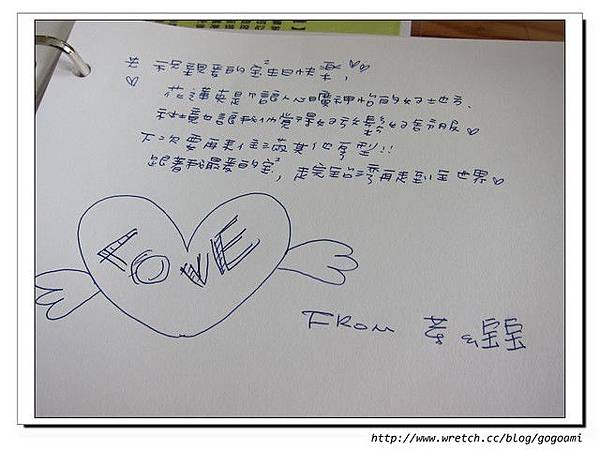 先祝親愛的寶²生日快樂,
花蓮真是個讓人心曠神怡的好地方.
秘境也讓我們覺得好放鬆好舒服
下次要再來住滿其他房型!!
跟著我最愛的寶², 走完台灣再走到全世界
LOVE
FROM
http://www.wretch.cc/blog/gogoami